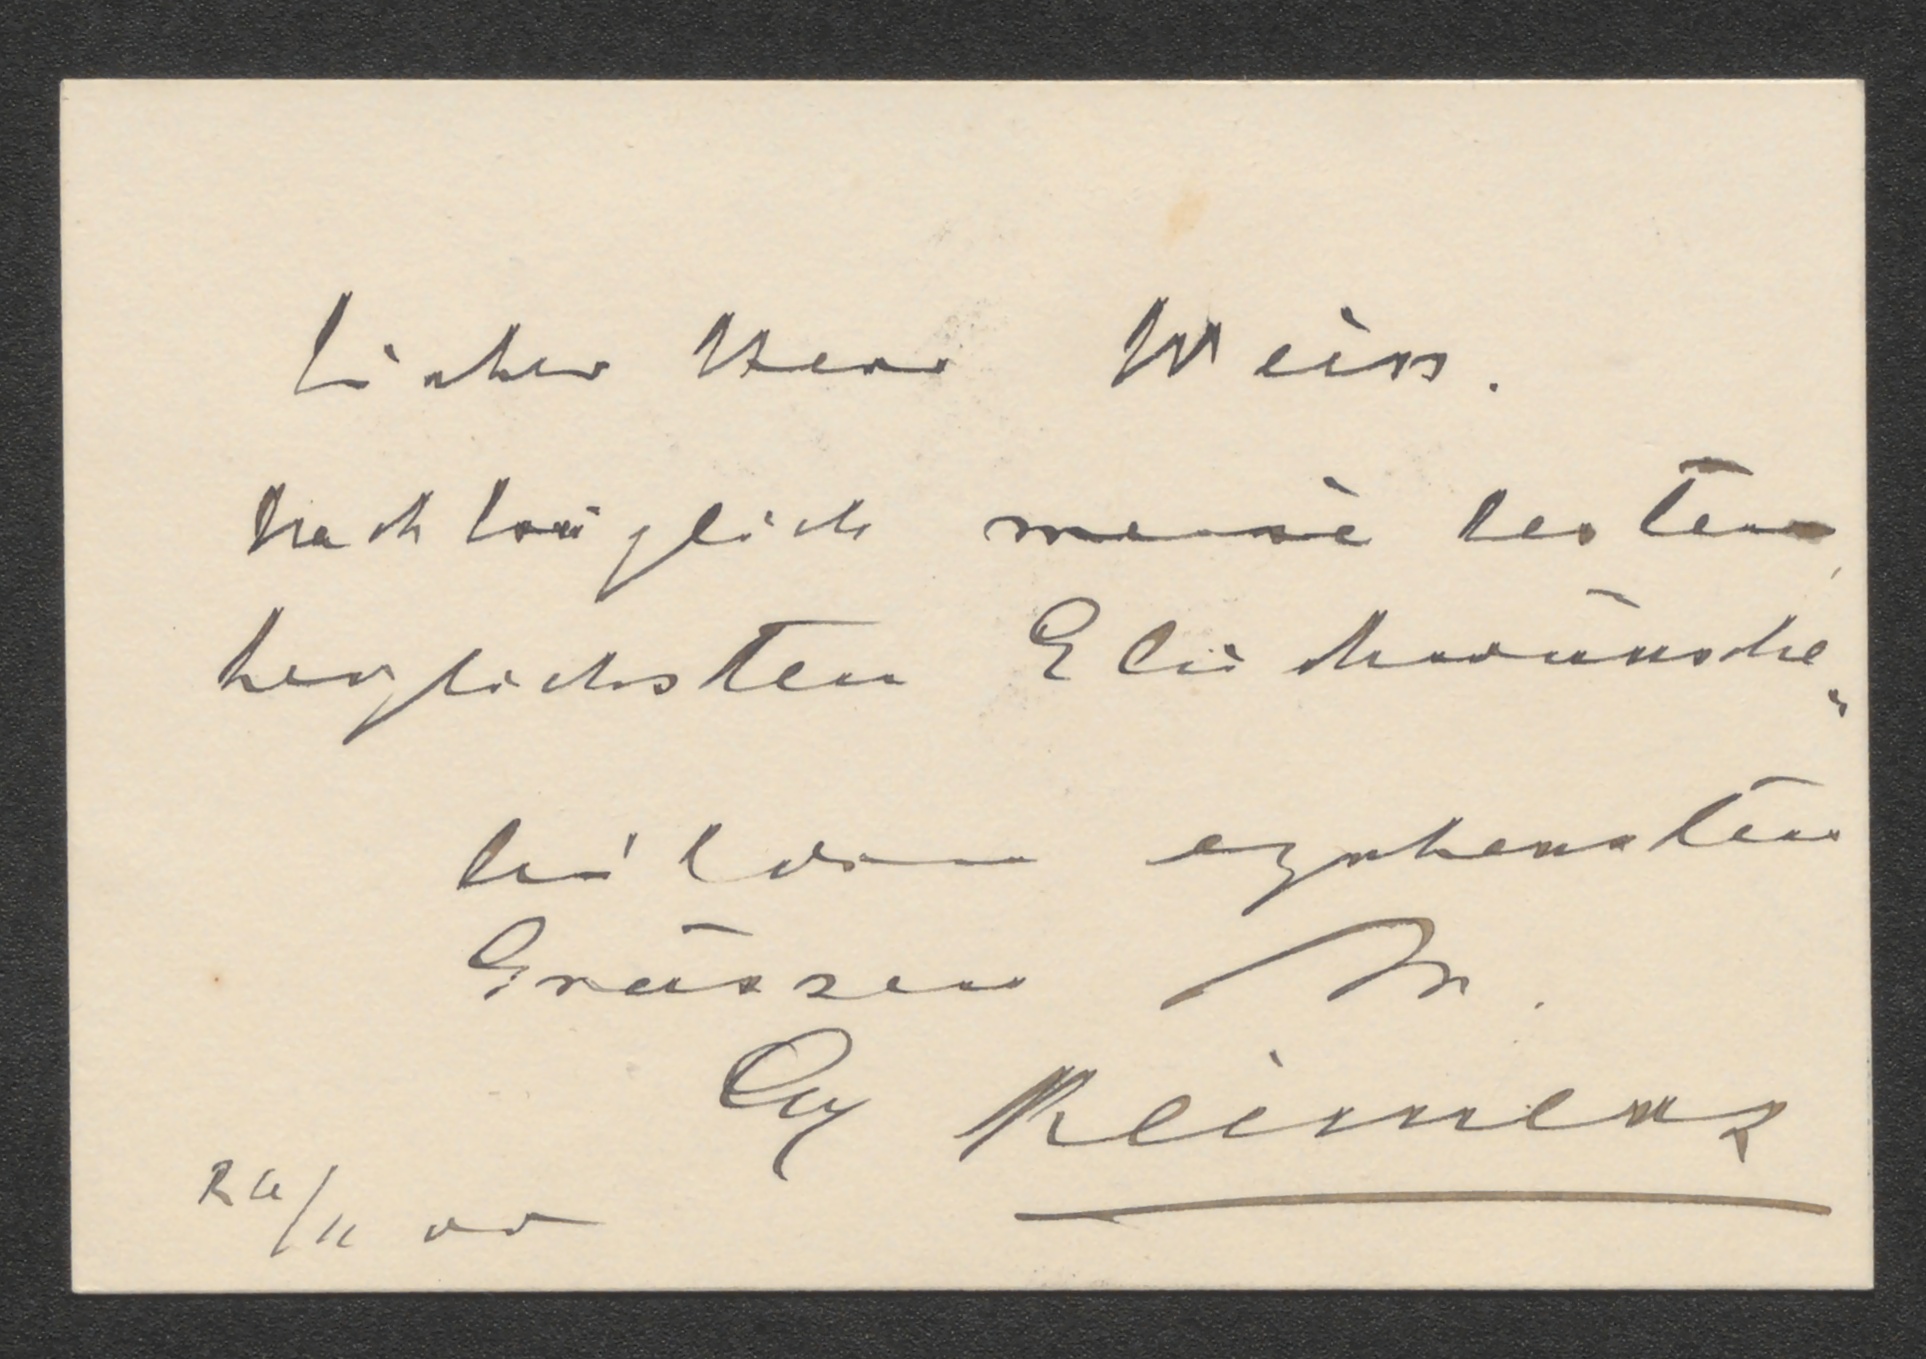 Lieber Herr Weiss.
Nachträglich meine besten,
herzlichsten Glückwünsche.
Mit den ergebensten
Grüssen Ihr.
Reimers